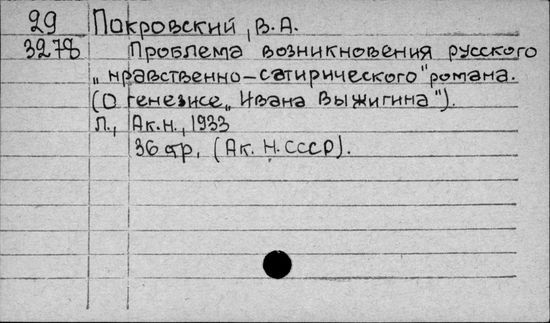 29 Покровский, В.А.
3278 Проблема возникновения русского
„нравственно-сатирического" романа.
(О генезисе „Ивана Выжигина").
Л., Ак.Н., 1933
36 стр. (Ак. Н. СССР).